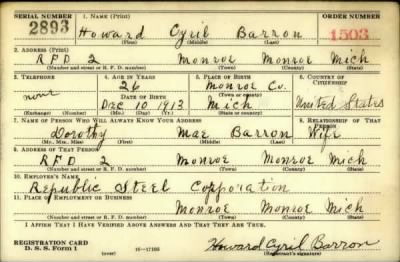 SERIAL NUMBER 1. NAME (Print) ORDER NUMBER
2893 Howard Cyril Barron 1503
(First) (Middle) (Last)
2. ADDRESS (Print)
RFD 2 Monroe Monroe Mich
(Number and street or R. F. D. number) (Town) (County) (State)
3. TELEPHONE 4. AGE IN YEARS 5. PLACE OF BIRTH 6. COUNTRY OF CITIZENSHIP
none 26 Monroe Co.
DATE OF BIRTH (Town or county)
Dec 10 1913 Mich United States
(Exchange) (Number) (Mo.) (Day) (Yr.) (State or country)
7. NAME OF PERSON WHO WILL ALWAYS KNOW YOUR ADDRESS 8. RELATIONSHIP OF THAT PERSON
Dorothy Mae Barron Wife
(Mr., Mrs., Miss) (First) (Middle) (Last)
9. ADDRESS OF THAT PERSON
RFD 2 Monroe Monroe Mich
(Number and street or R. F. D. number) (Town) (County) (State)
10. EMPLOYER'S NAME
Republic Steel Copporation
11. PLACE OF EMPLOYMENT OR BUSINESS
Monroe Monroe Mich
(Number and street or R. F. D. number) (Town) (County) (State)
I AFFIRM THAT I HAVE VERIFIED ABOVE ANSWERS AND THAT THEY ARE TRUE.
REGISTRATION CARD
D. S. S. Form 1 (over) 16-17105 Howard Cyril Barron
(Registrant's signature)